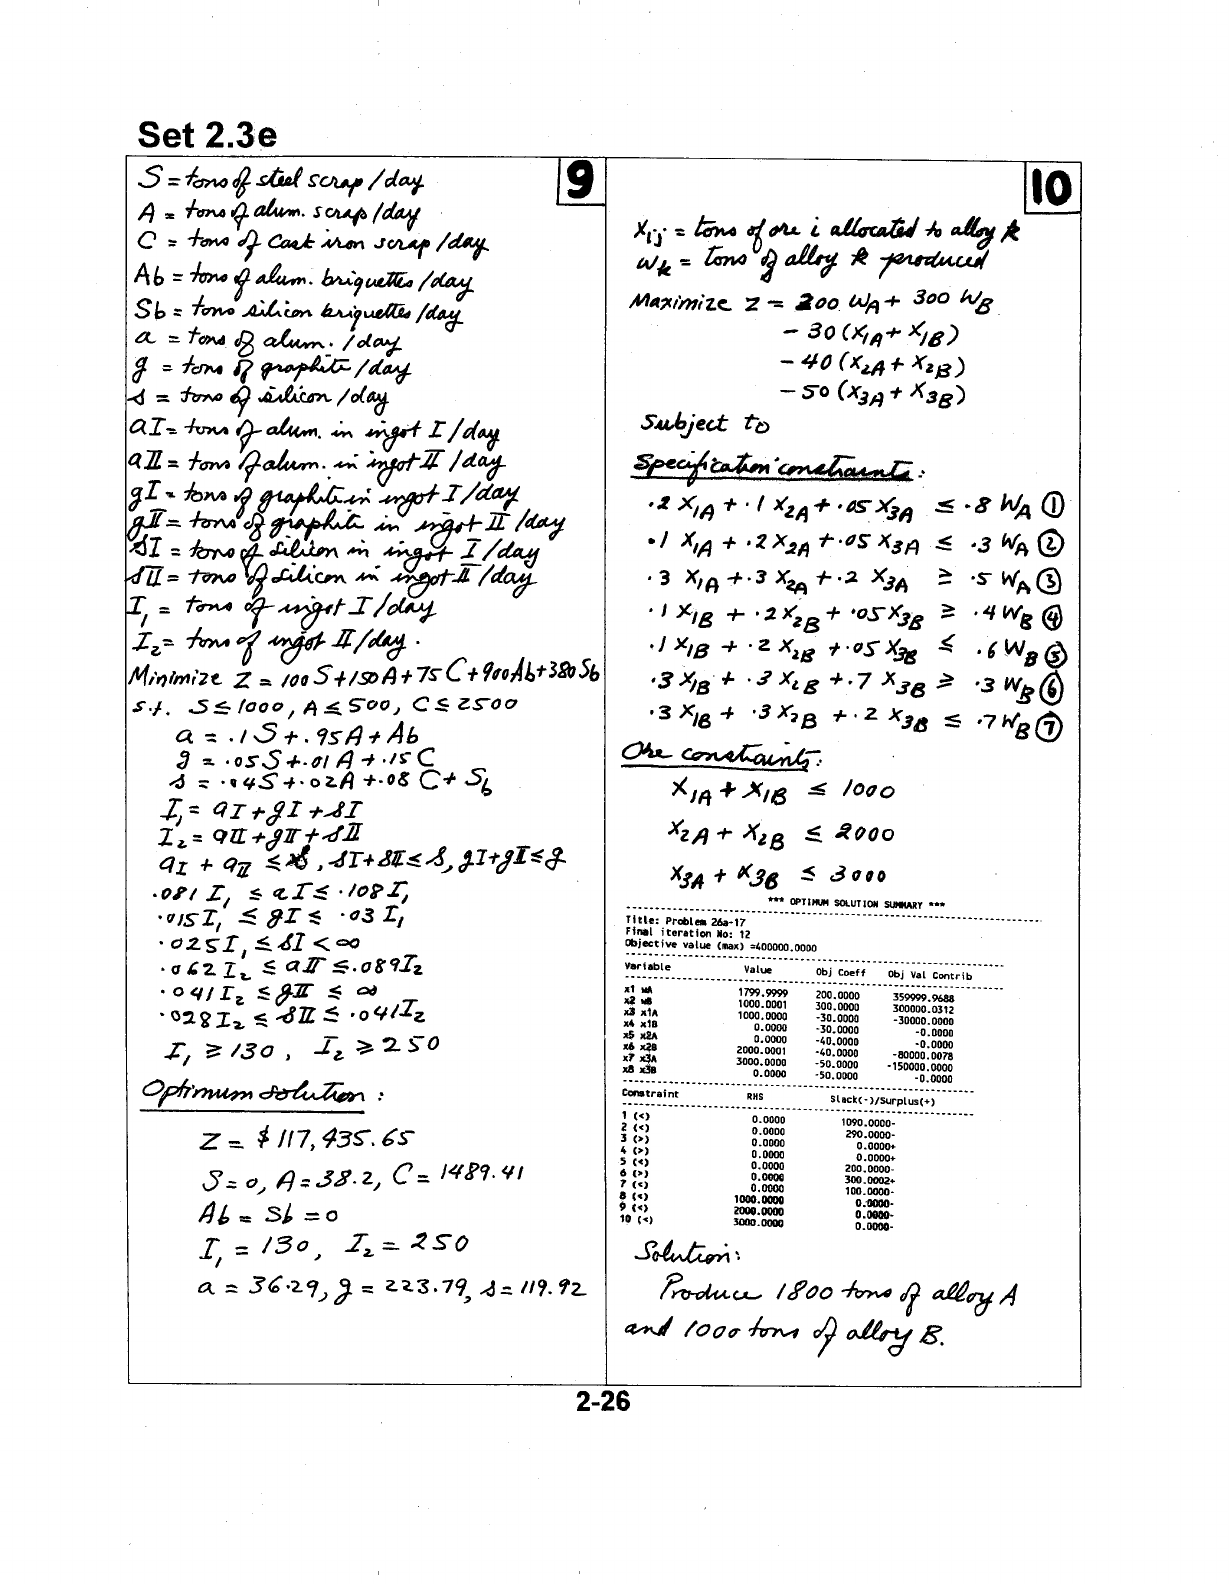 Set 2.3e
9
S = tons of steel scrap /day
A = tons of alum. scrap /day
C = tons of Cast iron scrap /day
Ab = tons of alum. briquettes /day
Sb = tons silicon briquettes /day
a = tons of alum. /day
g = tons of graphite /day
s = tons of silicon /day
aI = tons of alum. in ingot I /day
aII = tons of alum. in ingot II /day
gI = tons of graphite in ingot I /day
gII = tons of graphite in ingot II /day
sI = tons of silicon in ingot I /day
sII = tons of silicon in ingot II /day
I₁ = tons of ingot I /day
I₂ = tons of ingot II /day.
Minimize Z = 100 S + 150 A + 75 C + 900 Ab + 380 Sb
s.t. S ≤ 1000, A ≤ 500, C ≤ 2500
a = .1 S + .95 A + Ab
g = .05 S + .01 A + .15 C
s = .04 S + .02 A + .08 C + Sb
I₁ = aI + gI + sI
I₂ = aII + gII + sII
aI + aII ≤ , sI + sII ≤ s, gI + gII ≤ g
.081 I₁ ≤ aI ≤ .108 I₁
.015 I₁ ≤ gI ≤ .03 I₁
.025 I₁ ≤ sI < ∞
.062 I₂ ≤ aII ≤ .089 I₂
.041 I₂ ≤ gII ≤ ∞
.028 I₂ ≤ sII ≤ .041 I₂
I₁ ≥ 130 , I₂ ≥ 250
Optimum solution :
Z = $117,435.65
S = 0, A = 38.2, C = 1489.41
Ab = Sb = 0
I₁ = 130, I₂ = 250
a = 36.29, g = 223.79, s = 119.92
10
Xij = tons of ore i allocated to alloy k
wk = tons of alloy k produced
Maximize Z = 200 WA + 300 WB
- 30 (X1A + X1B)
- 40 (X2A + X2B)
- 50 (X3A + X3B)
Subject to
Specification constraints :
.2 X1A + .1 X2A + .05 X3A ≤ .8 WA ①
.1 X1A + .2 X2A + .05 X3A ≤ .3 WA ②
.3 X1A + .3 X2A + .2 X3A ≥ .5 WA ③
.1 X1B + .2 X2B + .05 X3B ≥ .4 WB ④
.1 X1B + .2 X2B + .05 X3B ≤ .6 WB ⑤
.3 X1B + .3 X2B + .7 X3B ≥ .3 WB ⑥
.3 X1B + .3 X2B + .2 X3B ≤ .7 WB ⑦
Ore constraints:
X1A + X1B ≤ 1000
X2A + X2B ≤ 2000
X3A + X3B ≤ 3000
*** OPTIMUM SOLUTION SUMMARY ***
Title: Problem 26a-17
Final iteration No: 12
Objective value (max) =400000.0000
Variable Value Obj Coeff Obj Val Contrib
x1 wA 1799.9999 200.0000 359999.9688
x2 wB 1000.0001 300.0000 300000.0312
x3 x1A 1000.0000 -30.0000 -30000.0000
x4 x1B 0.0000 -30.0000 -0.0000
x5 x2A 0.0000 -40.0000 -0.0000
x6 x2B 2000.0001 -40.0000 -80000.0078
x7 x3A 3000.0000 -50.0000 -150000.0000
x8 x3B 0.0000 -50.0000 -0.0000
Constraint RHS Slack(-)/Surplus(+)
1 (<) 0.0000 1090.0000-
2 (<) 0.0000 290.0000-
3 (>) 0.0000 0.0000+
4 (>) 0.0000 0.0000+
5 (<) 0.0000 200.0000-
6 (>) 0.0000 300.0002+
7 (<) 0.0000 100.0000-
8 (<) 1000.0000 0.0000-
9 (<) 2000.0000 0.0000-
10 (<) 3000.0000 0.0000-
Solution:
Produce 1800 tons of alloy A
and 1000 tons of alloy B.
2-26